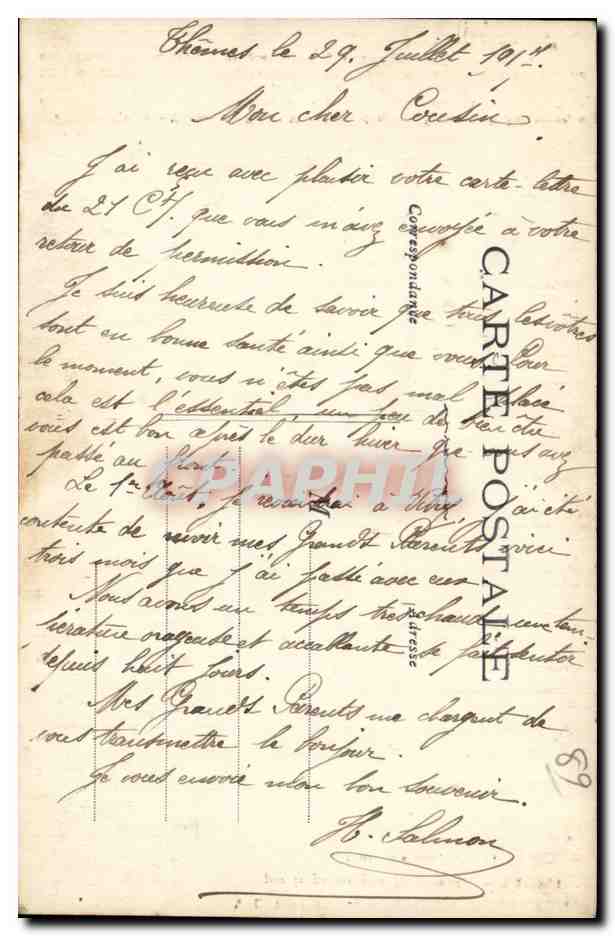 Thêmes le 29. Juillet 1917.
Mon cher Cousin
J'ai reçu avec plaisir votre carte-lettre
du 21 Ct. que vous m'avez envoyée à votre
retour de permission.
Je suis heureuse de savoir que tous les vôtres
sont en bonne santé ainsi que vous. Pour
le moment, vous n'êtes pas mal placé
cela est l'essentiel, un peu de bien-être
vous est bon après le dur hiver que vous avez
passé au front.
Le 1er Août, je reviendrai à J'ai été
contente de revoir mes Grands Parents voici
trois mois que j'ai passé avec eux
Nous avons un temps très chaud une tem-
pérature orageuse et accablante se fait sentir
depuis huit jours.
Mes Grands Parents me chargent de
vous transmettre le bonjour.
Je vous envoie mon bon souvenir.
H. Salmon
CARTE POSTALE
Correspondance
Adresse
M
89
CPAPHIL